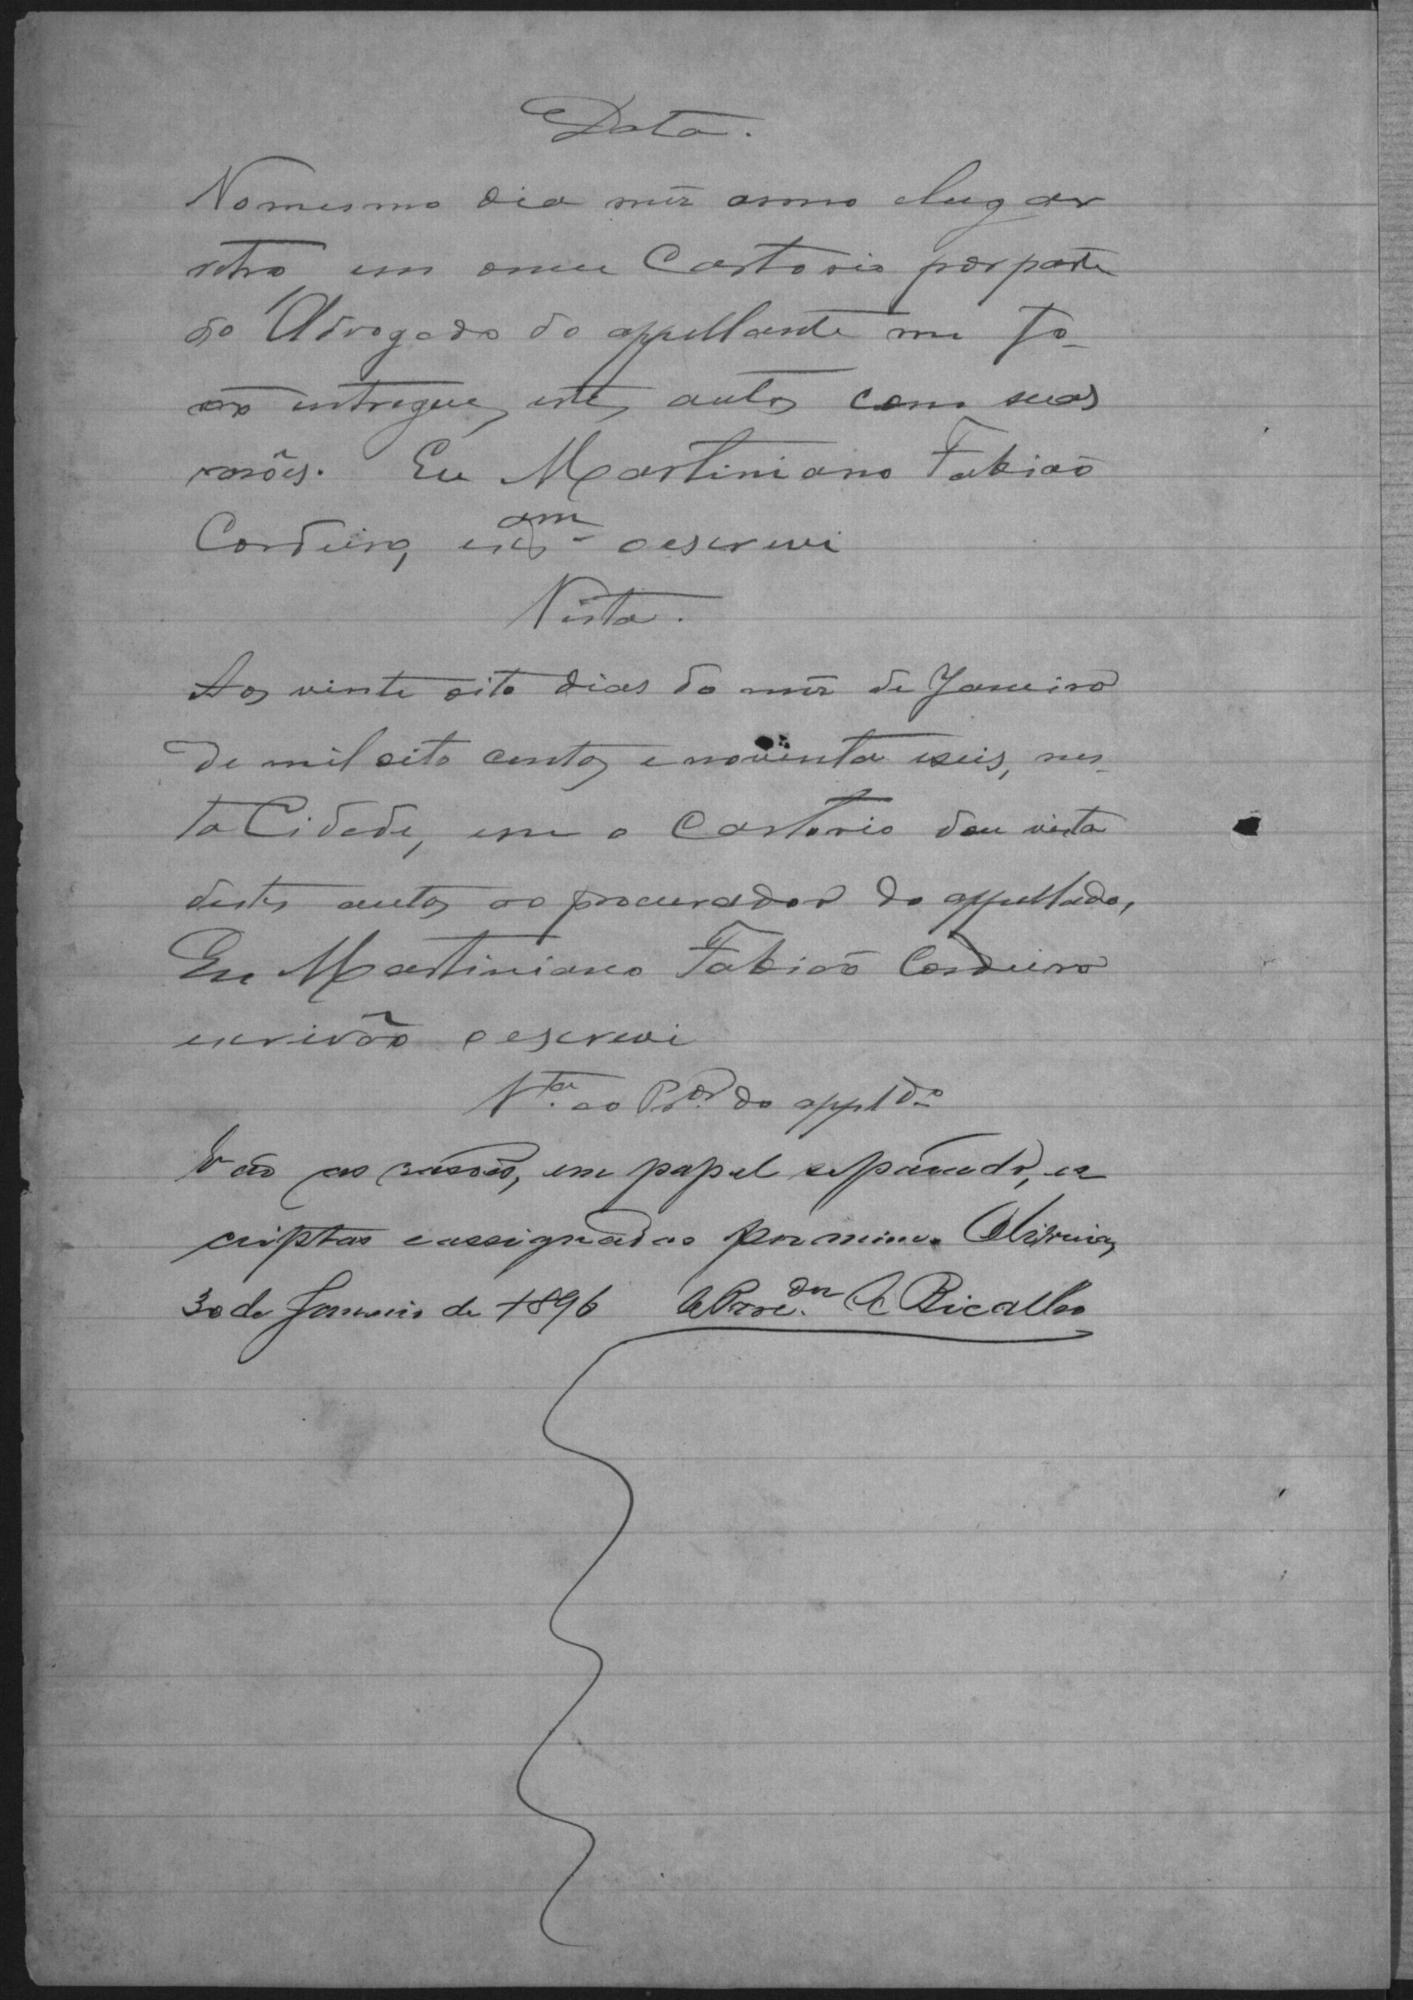 Data.
No mesmo dia mez anno e lugar
retro em o meu Cartorio por parte
do Advogado do appellante me fo-
rão entregues estes autos com suas
rasões. Eu Martiniano Fabião
Cordeiro, escram o escrevi
Vista.
Aos vinte oito dias do mez de Janeiro
de mil oito centos e noventa e seis, nes-
ta Cidade, em o Cartorio dou vista
destes autos ao procurador do appellado,
Eu Martiniano Fabião Cordeiro
escrivão o escrevi
Vta. ao Pror. do appldo
Vão as rasões, em papel separado, es
criptas e assignadas por mim. Oliveira,
30 de Janeiro de 1896 O Procdor. A Bicalho